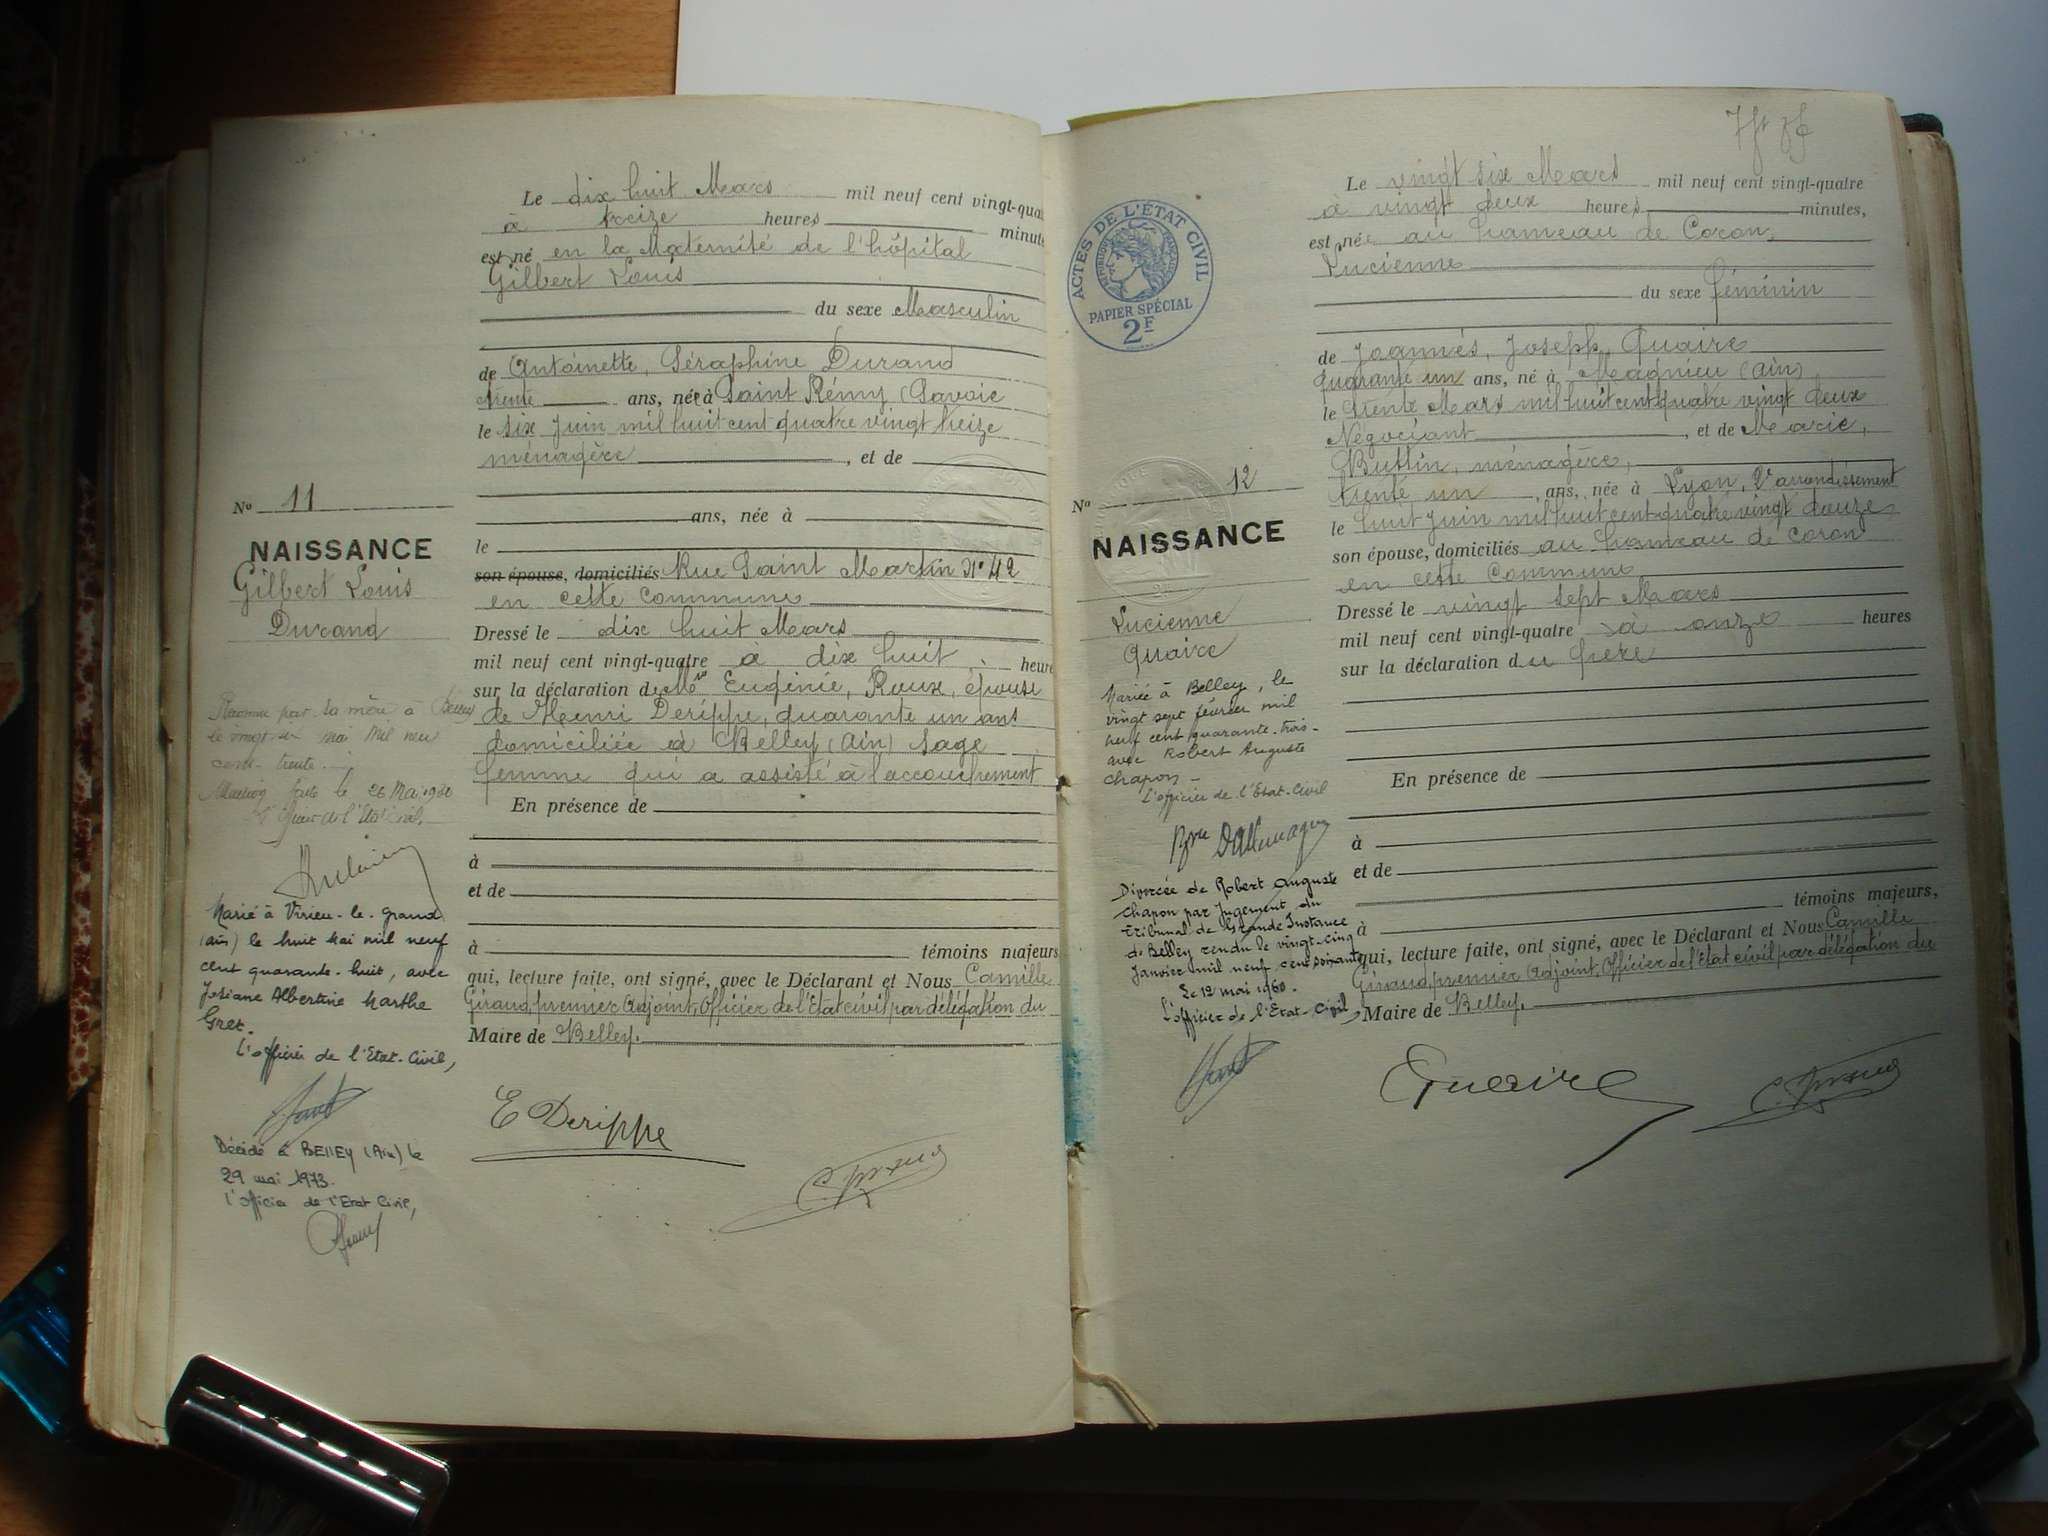 Le dix huit Mars mil neuf cent vingt-quat
à treize heures minute
est né en la Maternité de l'hôpital
Gilbert Louis
du sexe Masculin
de Antoinette, Séraphine Durand
trente ans, née à Saint Rémy (Savoie
le six Juin mil huit cent quatre vingt treize
ménagère, et de
ans, née à
le
son épouse, domiciliés Rue Saint Martin N° 42
en cette commune
Dressé le dix huit Mars
mil neuf cent vingt-quatre à dix huit heure
sur la déclaration de Mme Eugénie, Roux, épouse
de Henri Derippe, quarante un ans
domiciliée à Belley (Ain) sage
femme qui a assisté à l'accouchement
En présence de
à
et de
à témoins majeurs
qui, lecture faite, ont signé, avec le Déclarant et Nous Camille
Giraud, premier Adjoint, Officier de l'Etat civil par délégation du
Maire de Belley.
E Derippe
No 11
NAISSANCE
Gilbert Louis
Durand
Reconnu par sa mère à Belley
le vingt six mai mil neuf
cent trente.
Mention faite le 26 Mai 1930
L'officier de l'Etat Civil,
Marié à Virieu-le-Grand
(Ain) le huit Mai mil neuf
cent quarante-huit, avec
Josiane Albertine Marthe
Gret.
L'officier de l'Etat-Civil,
Décédé à BELLEY (Ain) le
29 mai 1973.
L'officier de l'Etat Civil,
ACTES DE L'ÉTAT CIVIL
RÉPUBLIQUE FRANÇAISE
PAPIER SPÉCIAL
2F
Le vingt six Mars mil neuf cent vingt-quatre
à vingt deux heures minutes,
est née au hameau de Coron,
Lucienne
du sexe féminin
de Joannès, Joseph, Quaire
quarante un ans, né à Magnieu (Ain)
le trente Mars mil huit cent quatre vingt deux
Négociant, et de Marie,
Buttin, ménagère,
trente un ans, née à Lyon, 2e arrondissement
le huit Juin mil huit cent quatre vingt douze
son épouse, domiciliés au hameau de Coron
en cette Commune
Dressé le vingt sept Mars
mil neuf cent vingt-quatre à onze heures
sur la déclaration du père
En présence de
à
et de
à témoins majeurs,
qui, lecture faite, ont signé, avec le Déclarant et Nous Camille
Giraud, premier Adjoint, Officier de l'Etat civil par délégation du
Maire de Belley.
Quaire
No 12
NAISSANCE
Lucienne
Quaire
Mariée à Belley, le
vingt sept février mil
neuf cent quarante-trois
avec Robert Auguste
Chapon
L'officier de l'Etat-Civil
Divorcée de Robert Auguste
Chapon par Jugement du
Tribunal de Grande Instance
de Belley rendu le vingt-cinq
Janvier mil neuf cent soixante
Le 12 mai 1960.
L'officier de l'Etat-Civil,